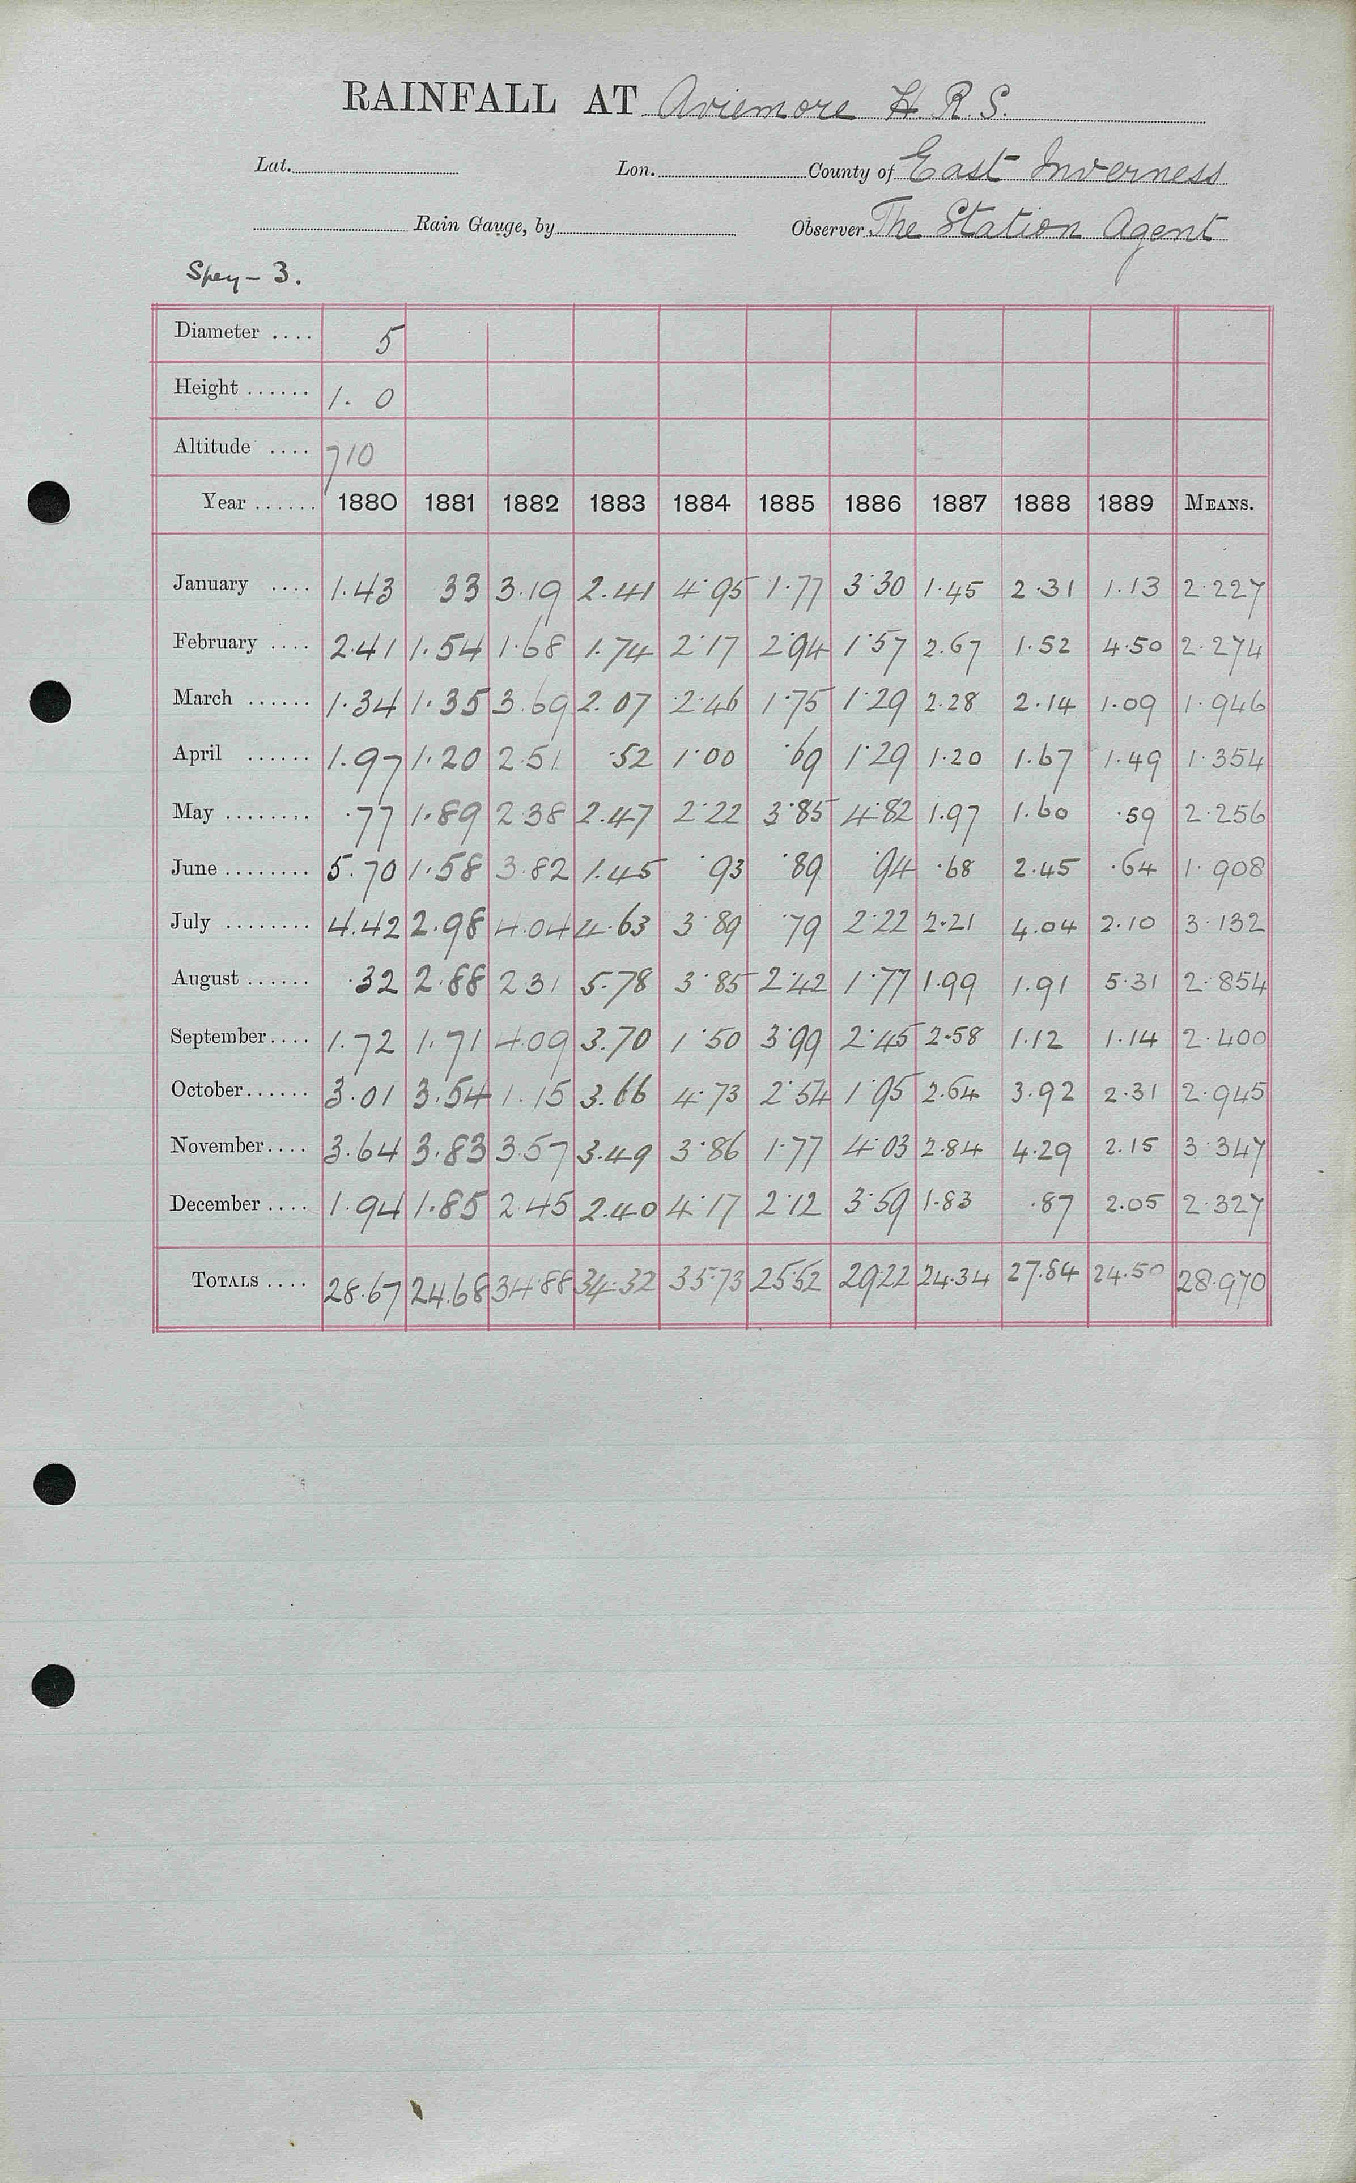 RAINFALL AT Aviemore H.R.S.
Lat. Lon. County of East Inverness
Rain Gauge, by Observer The Station Agent
Spey - 3.
Diameter .... 5
Height ...... 1. 0
Altitude .... 710
Year ...... 1880 1881 1882 1883 1884 1885 1886 1887 1888 1889 MEANS.
January .... 1.43 33 3.19 2.41 4.95 1.77 3.30 1.45 2.31 1.13 2.227
February .... 2.41 1.54 1.68 1.74 2.17 2.94 1.57 2.67 1.52 4.50 2.274
March ...... 1.34 1.35 3.69 2.07 2.46 1.75 1.29 2.28 2.14 1.09 1.946
April ...... 1.97 1.20 2.51 .52 1.00 .69 1.29 1.20 1.67 1.49 1.354
May ........ .77 1.89 2.38 2.47 2.22 3.85 4.82 1.97 1.60 .59 2.256
June ........ 5.70 1.58 3.82 1.45 .93 .89 .94 .68 2.45 .64 1.908
July ........ 4.42 2.98 4.04 4.63 3.89 .79 2.22 2.21 4.04 2.10 3.132
August ...... .32 2.88 2.31 5.78 3.85 2.42 1.77 1.99 1.91 5.31 2.854
September .... 1.72 1.71 4.09 3.70 1.50 3.99 2.45 2.58 1.12 1.14 2.400
October ...... 3.01 3.54 1.15 3.66 4.73 2.54 1.95 2.64 3.92 2.31 2.945
November .... 3.64 3.83 3.57 3.49 3.86 1.77 4.03 2.84 4.29 2.15 3.347
December .... 1.94 1.85 2.45 2.40 4.17 2.12 3.59 1.83 .87 2.05 2.327
TOTALS .... 28.67 24.68 34.88 34.32 35.73 25.52 29.22 24.34 27.84 24.50 28.970